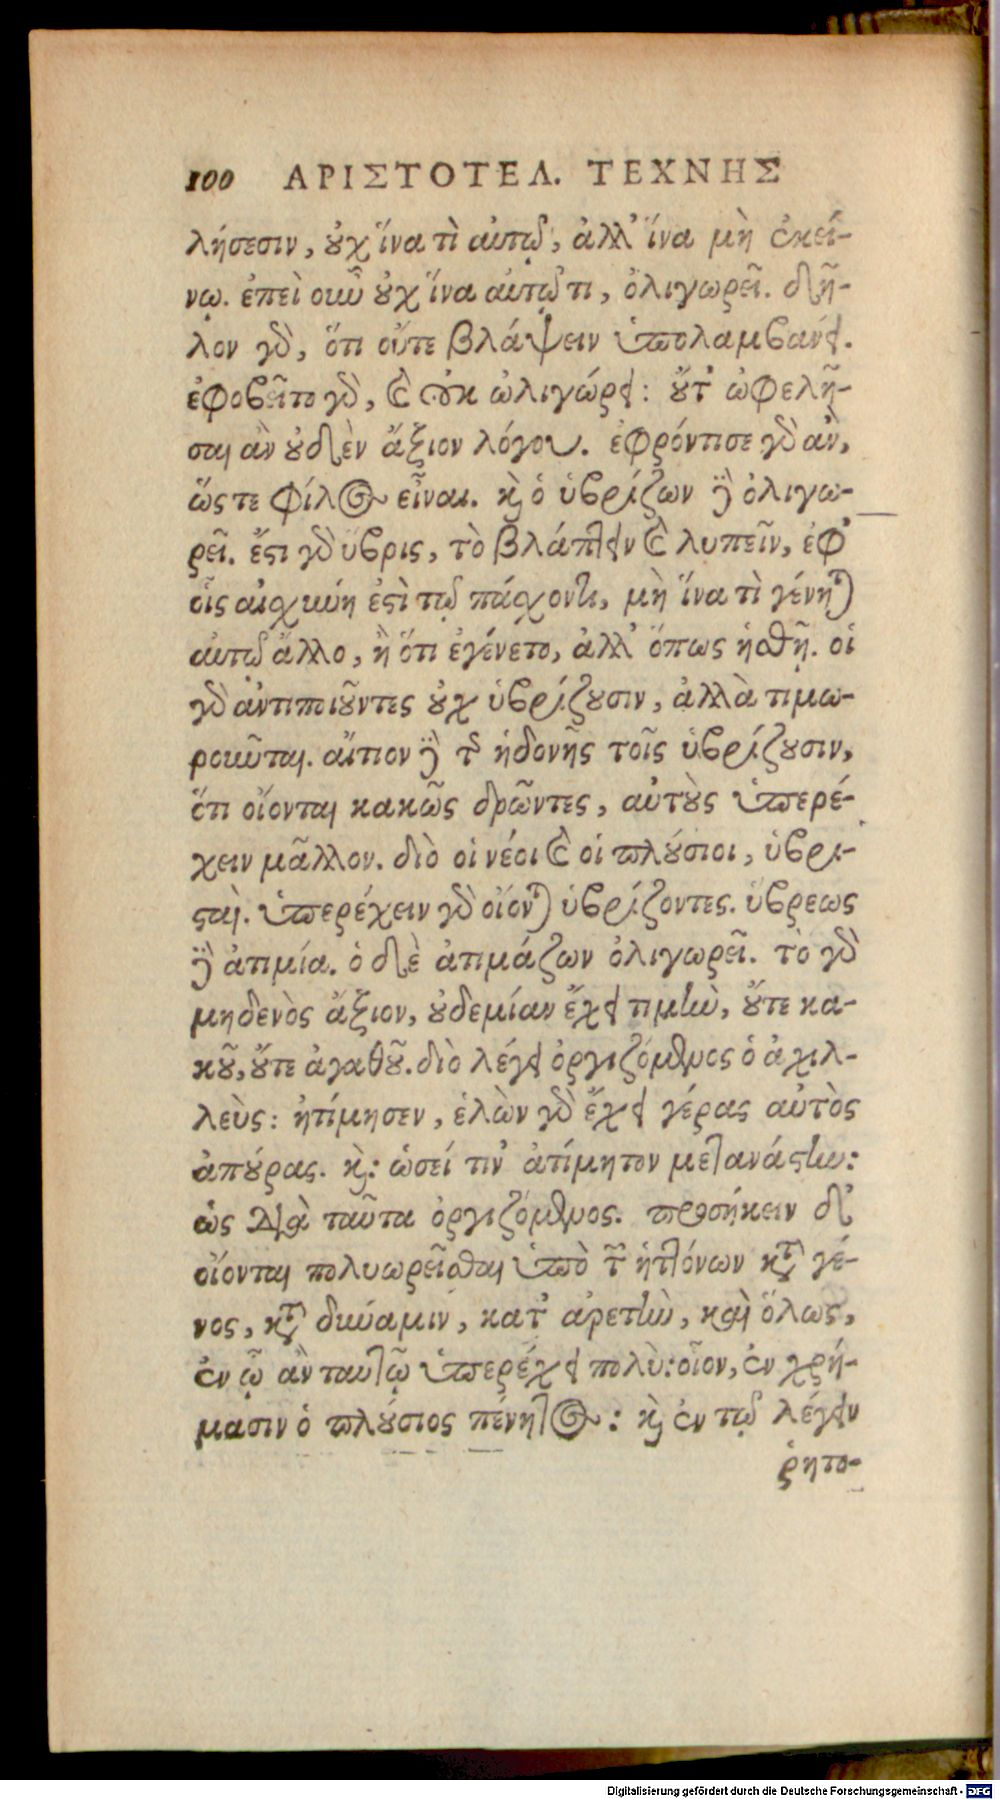 100 ΑΡΙΣΤΟΤΕΛ. ΤΕΧΝΗΣ
λήσεσιν, οὐχ ἵνα τὶ αὐτῷ, ἀλλ' ἵνα μὴ ἐκεί-
νῳ. ἐπεὶ οὖν οὐχ ἵνα αὐτῷ τι, ὀλιγωρεῖ. δῆ-
λον γὰρ, ὅτι οὔτε βλάψειν ὑπολαμβανει.
ἐφοβεῖτο γὰρ, καὶ οὐκ ὠλιγώρει: οὔτ' ὠφελῆ-
σαι ἂν οὐδὲν ἄξιον λόγου. ἐφρόντισε γὰρ ἂν,
ὥς τε φίλος εἶναι. καὶ ὁ ὑβρίζων δὲ ὀλιγω-
ρεῖ. ἔστι γὰρ ὕβρις, τὸ βλάπτειν καὶ λυπεῖν, ἐφ'
οἷς αἰσχύνη ἐστὶ τῷ πάσχοντι, μὴ ἵνα τὶ γένηται
αὐτῷ ἄλλο, ἢ ὅτι ἐγένετο, ἀλλ' ὅπως ἡσθῇ. οἱ
γὰρ ἀντιποιοῦντες οὐχ ὑβρίζουσιν, ἀλλὰ τιμω-
ροῦνται. αἴτιον δὲ τῆς ἡδονῆς τοῖς ὑβρίζουσιν,
ὅτι οἴονται κακῶς δρῶντες, αὐτοὺς ὑπερέ-
χειν μᾶλλον. διὸ οἱ νέοι καὶ οἱ πλούσιοι, ὑβρι-
σταί. ὑπερέχειν γὰρ οἴονται ὑβρίζοντες. ὕβρεως
δὲ ἀτιμία. ὁ δὲ ἀτιμάζων ὀλιγωρεῖ. τὸ γὰρ
μηδενὸς ἄξιον, οὐδεμίαν ἔχει τιμὴν, οὔτε κα-
κοῦ, οὔτε ἀγαθοῦ. διὸ λέγει ὀργιζόμενος ὁ ἀχιλ-
λεὺς: ἠτίμησεν, ἑλὼν γὰρ ἔχει γέρας αὐτὸς
ἀπούρας. καὶ: ὡσεί τιν' ἀτίμητον μετανάστην:
ὡς διὰ ταῦτα ὀργιζόμενος. προσήκειν δ'
οἴονται πολυωρεῖσθαι ὑπὸ τῶν ἡττόνων κατὰ γέ-
νος, κατὰ δύναμιν, κατ' ἀρετὴν, καὶ ὅλως,
ἐν ᾧ ἂν ταυτῷ ὑπερέχει πολὺ: οἷον, ἐν χρή-
μασιν ὁ πλούσιος πένητος: καὶ ἐν τῷ λέγειν
ῥητο-
Digitalisierung gefördert durch die Deutsche Forschungsgemeinschaft - DFG